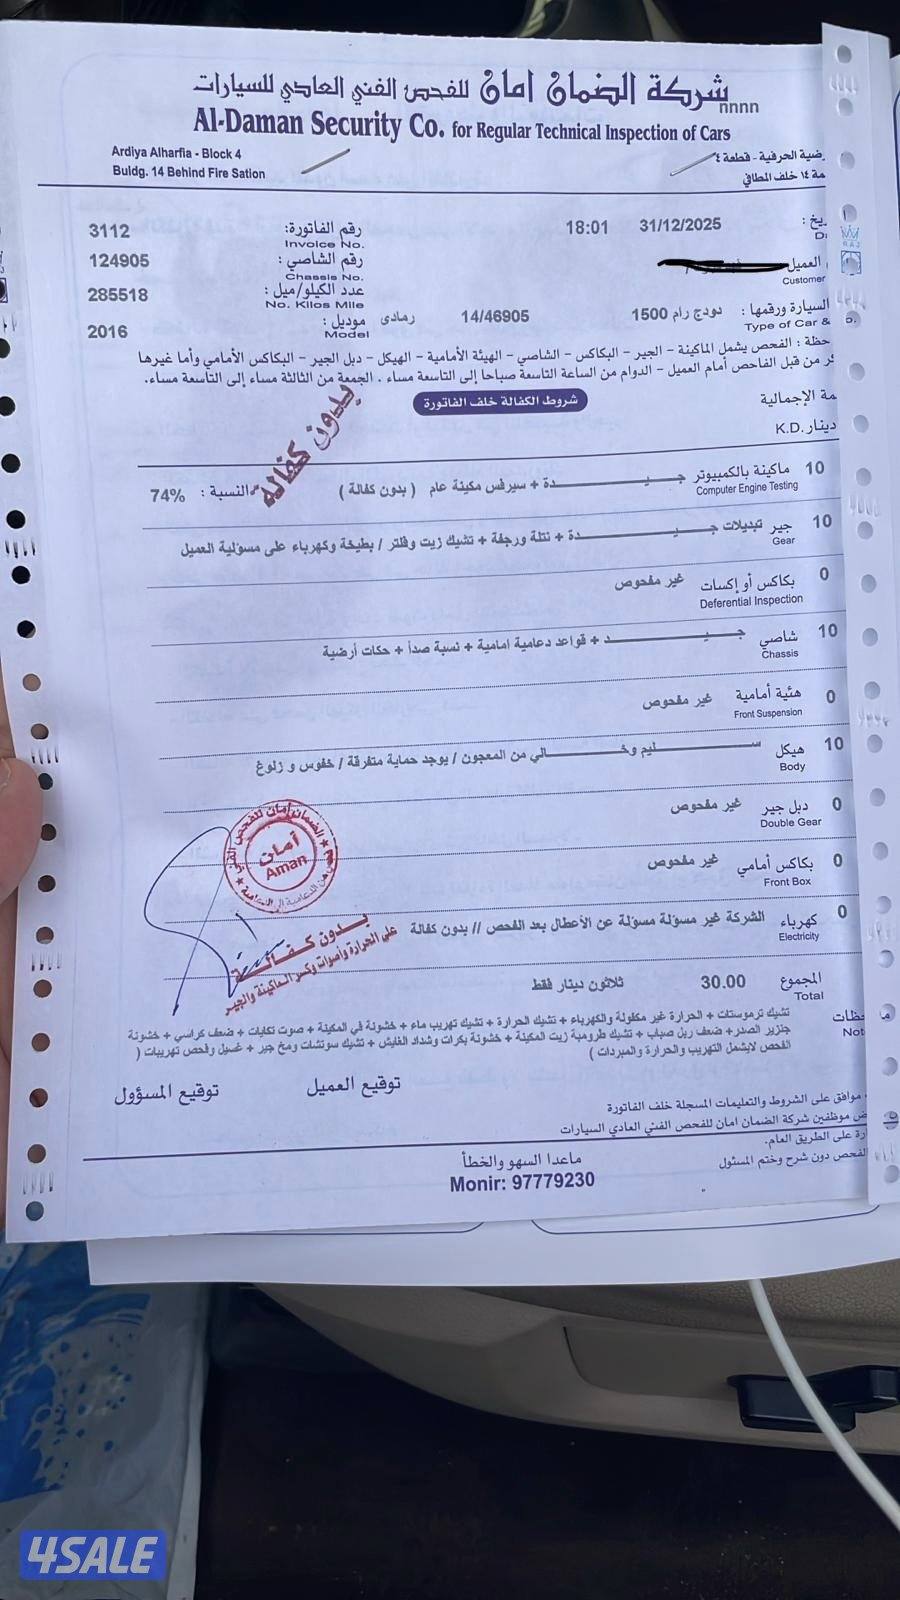 شركة الضمان امان للفحص الفني العادي للسيارات
nnnn
Al-Daman Security Co. for Regular Technical Inspection of Cars
Ardiya Alharfia - Block 4
Buldg. 14 Behind Fire Sation
ضية الحرفية - قطعة ٤
مة ١٤ خلف المطافي
يخ : 31/12/2025 18:01
رقم الفاتورة: 3112
Invoice No.
العميل
Customer
رقم الشاصي : 124905
Chassis No.
عدد الكيلو/ميل : 285518
No. Kilos Mile
السيارة ورقمها : دودج رام 1500 14/46905 رمادى
Type of Car & No.
موديل : 2016
Model
حظة : الفحص يشمل الماكينة - الجير - البكاكس - الشاصي - الهيئة الأمامية - الهيكل - دبل الجير - البكاكس الأمامي وأما غيرها
ر من قبل الفاحص أمام العميل - الدوام من الساعة التاسعة صباحا إلى التاسعة مساء . الجمعة من الثالثة مساء إلى التاسعة مساء.
شروط الكفالة خلف الفاتورة
مة الإجمالية
دينار K.D.
بدون كفالة
10 ماكينة بالكمبيوتر جـــيـــدة + سيرفس مكينة عام ( بدون كفالة ) النسبة : 74%
Computer Engine Testing
10 جير تبديلات جـــيـــدة + نتلة ورجفة + تشيك زيت وفلتر / بطيخة وكهرباء على مسؤلية العميل
Gear
0 بكاكس أو إكسات غير مفحوص
Deferential Inspection
10 شاصي جـــيـــد + قواعد دعامية امامية + نسبة صدأ + حكات أرضية
Chassis
0 هئية أمامية غير مفحوص
Front Suspension
10 هيكل ســـليم وخـــالي من المعجون / يوجد حماية متفرقة / خفوس و زلوغ
Body
0 دبل جير غير مفحوص
Double Gear
0 بكاكس أمامي غير مفحوص
Front Box
أمان
Aman
0 كهرباء الشركة غير مسؤلة مسؤلة عن الأعطال بعد الفحص // بدون كفالة
Electricity
بدون كفالة
على الحرارة وأصوات وكسر الماكينة والجير
المجموع 30.00 ثلاثون دينار فقط
Total
حظات
Not
تشيك ترموستات + الحرارة غير مكفولة والكهرباء + تشيك الحرارة + تشيك تهريب ماء + خشونة في المكينة + صوت تكايات + ضعف كراسي + خشونة
جنزير الصدر + ضعف ربل صباب + تشيك طرومبة زيت المكينة + خشونة بكرات وشداد القايش + تشيك سوتشات ومخ جير + غسيل وفحص تهريبات (
الفحص لايشمل التهريب والحرارة والمبردات )
توقيع العميل
توقيع المسؤول
موافق على الشروط والتعليمات المسجلة خلف الفاتورة
ض موظفين شركة الضمان امان للفحص الفني العادي السيارات
رة على الطريق العام.
لفحص دون شرح وختم المسئول
ماعدا السهو والخطأ
Monir: 97779230
4SALE